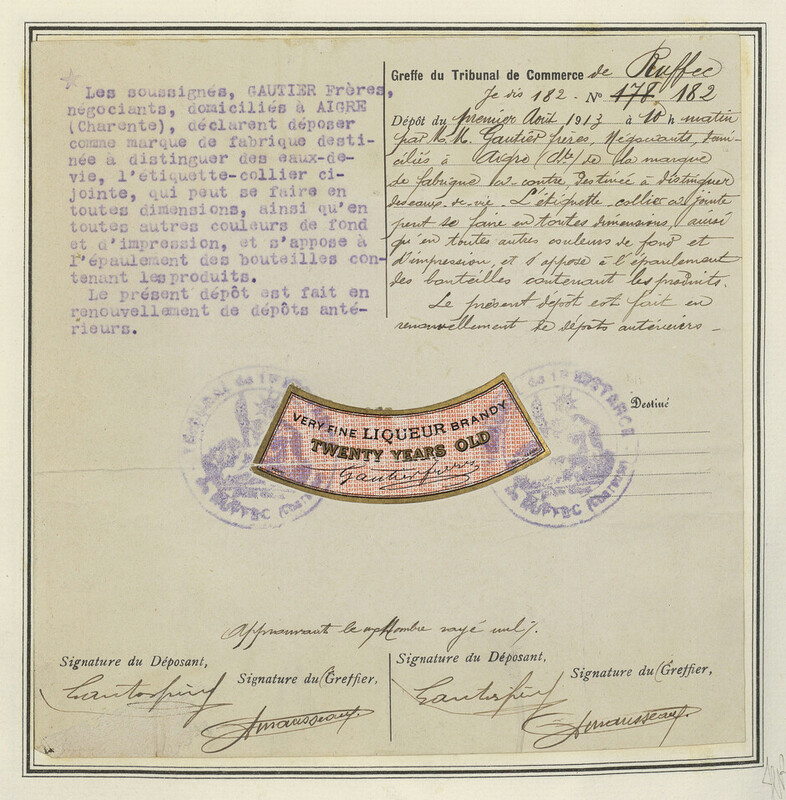 Les soussignés, GAUTIER Frères,
négociants, domiciliés à AIGRE
(Charente), déclarent déposer
comme marque de fabrique desti-
née à distinguer des eaux-de-
vie, l'étiquette-collier ci-
jointe, qui peut se faire en
toutes dimensions, ainsi qu'en
toutes autres couleurs de fond
et d'impression, et s'appose à
l'épaulement des bouteilles con-
tenant les produits.
Le présent dépôt est fait en
renouvellement de dépôts anté-
rieurs.
Greffe du Tribunal de Commerce de Ruffec
Je dis 182 - N° 178 182
Dépôt du premier Avril 1913 à 10 h matin
par M.M. Gautier frères, Négociants, domi-
ciliés à Aigre de la marque
de fabrique ci-contre, destinée à distinguer
des eaux-de-vie. L'étiquette-collier ci-jointe
peut se faire en toutes dimensions, ainsi
qu'en toutes autres couleurs de fond et
d'impression, et s'appose à l'épaulement
des bouteilles contenant les produits.
Le présent dépôt est fait en
renouvellement de dépôts antérieurs -
VERY FINE LIQUEUR BRANDY
TWENTY YEARS OLD
Gautier frères
TRIBUNAL de 1re INSTANCE
de RUFFEC (Charente)
de 1re INSTANCE
de RUFFEC (Charente)
Destiné
Approuvant le nombre rayé nul.
Signature du Déposant,
Signature du Greffier,
Signature du Déposant,
Signature du Greffier,